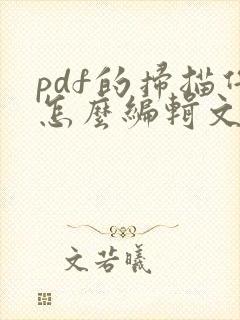 pdf的掃描件
怎麼編輯文
文若曦